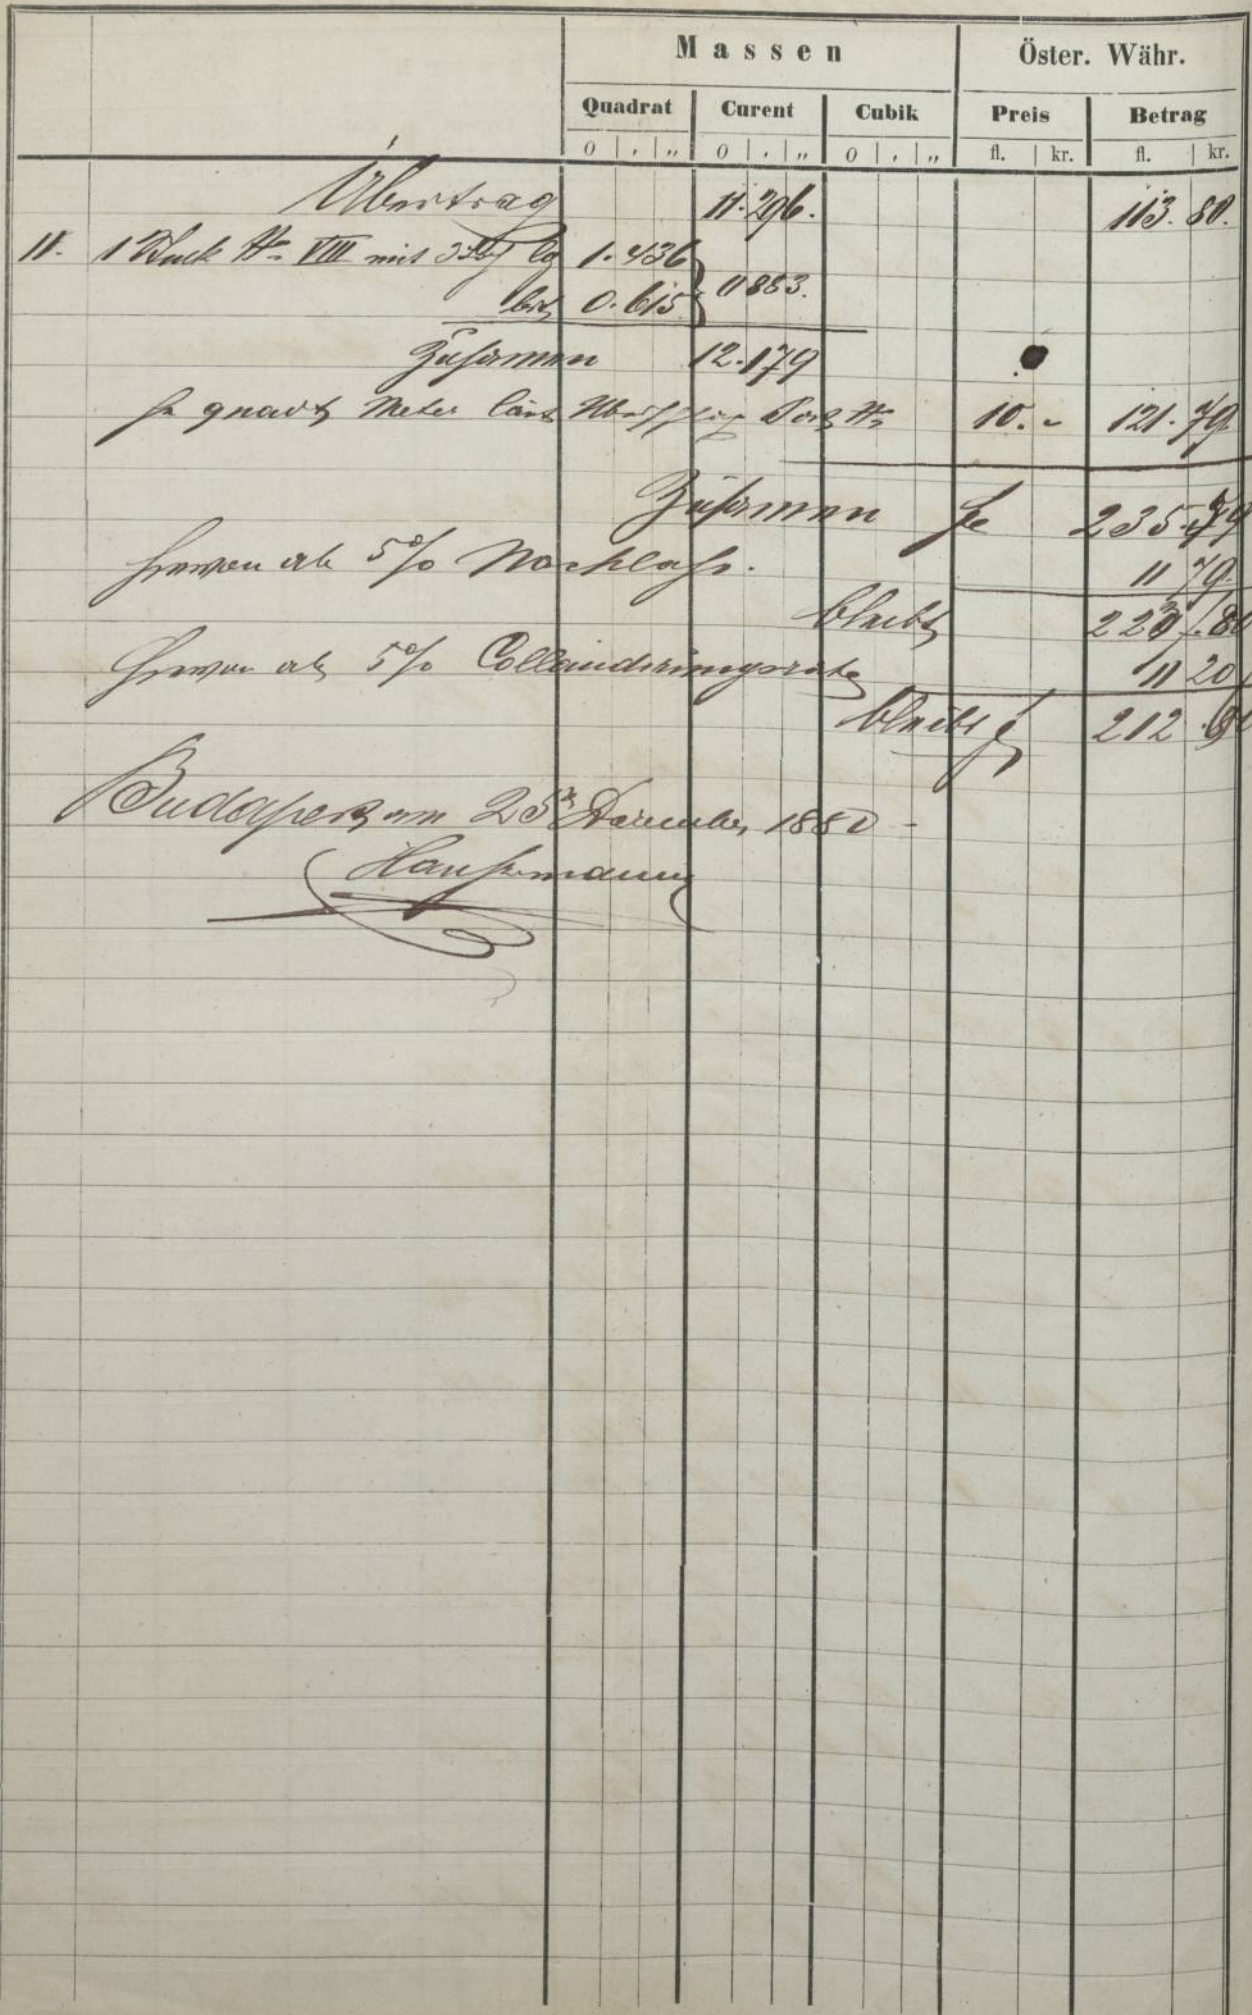 Massen Öster. Währ.
Quadrat Curent Cubik Preis Betrag
0 ' " 0 ' " 0 ' " fl. kr. fl. kr.
Übertrag 11.296. 113.80.
11. 1 Stück No VIII mit lg 1.436
brt 0.615 } 0883.
Zusammen 12.179
pr quadt Meter laut 10.- 121.79
Zusammen fl 235.59
hievon ab 5% Nachlass. 11 79.
bleibt 223.80
hievon ab 5% Collaudirungsrate 11 20
bleibt fl 212.60
Budapest am 25 December 1880
Hauszmann